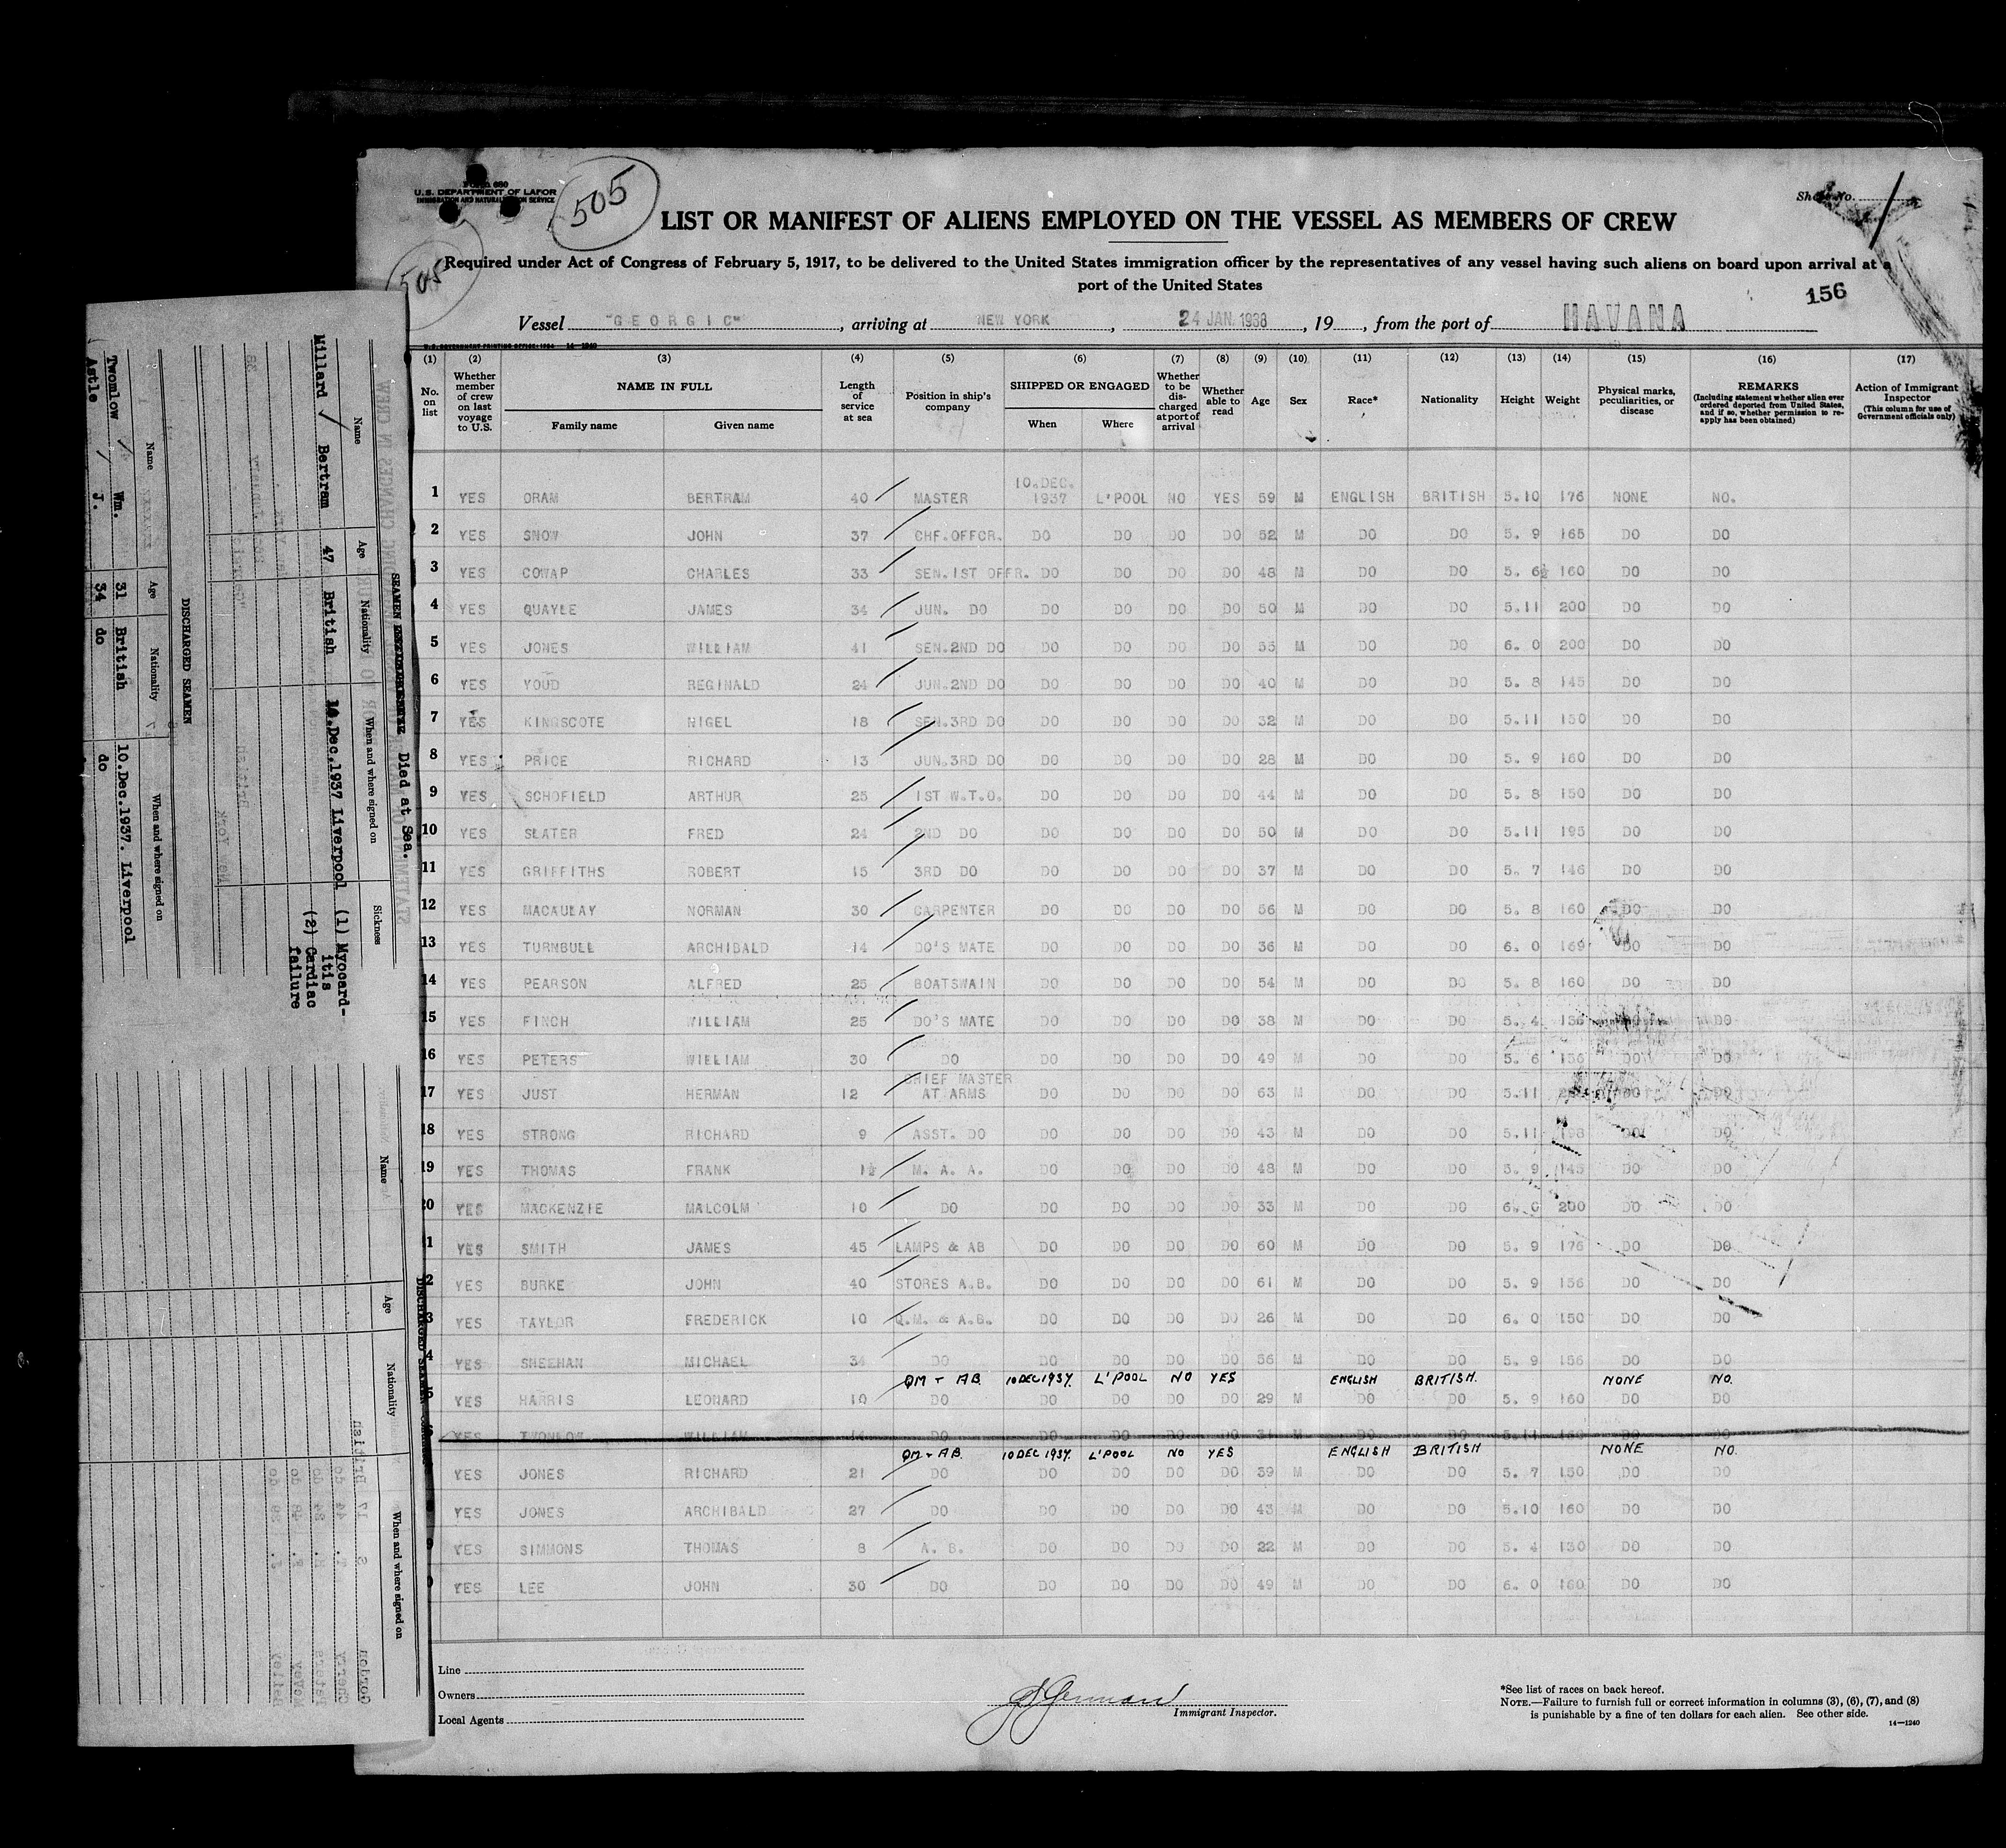 Form 680
U.S. DEPARTMENT OF LABOR
IMMIGRATION AND NATURALIZATION SERVICE
505
505
Sheet No. 1
LIST OR MANIFEST OF ALIENS EMPLOYED ON THE VESSEL AS MEMBERS OF CREW
Required under Act of Congress of February 5, 1917, to be delivered to the United States immigration officer by the representatives of any vessel having such aliens on board upon arrival at a
port of the United States
156
Vessel "GEORGIC", arriving at NEW YORK, 24 JAN. 1938, 19, from the port of HAVANA
(1) (2) (3) (4) (5) (6) (7) (8) (9) (10) (11) (12) (13) (14) (15) (16) (17)
No. on list
Whether member of crew on last voyage to U.S.
NAME IN FULL
Family name Given name
Length of service at sea
Position in ship's company
SHIPPED OR ENGAGED
When Where
Whether to be discharged at port of arrival
Whether able to read
Age
Sex
Race*
Nationality
Height
Weight
Physical marks, peculiarities, or disease
REMARKS
(Including statement whether alien ever ordered deported from United States, and if so, whether permission to reapply has been obtained)
Action of Immigrant Inspector
(This column for use of Government officials only)
1 YES ORAM BERTRAM 40 MASTER 10.DEC. 1937 L'POOL NO YES 59 M ENGLISH BRITISH 5.10 176 NONE NO.
2 YES SNOW JOHN 37 CHF.OFFCR. DO DO DO DO 52 M DO DO 5. 9 165 DO DO
3 YES COWAP CHARLES 33 SEN.1ST OFFR. DO DO DO DO 48 M DO DO 5. 6½ 160 DO DO
4 YES QUAYLE JAMES 34 JUN. DO DO DO DO DO 50 M DO DO 5.11 200 DO DO
5 YES JONES WILLIAM 41 SEN.2ND DO DO DO DO DO 55 M DO DO 6. 0 200 DO DO
6 YES YOUD REGINALD 24 JUN.2ND DO DO DO DO DO 40 M DO DO 5. 8 145 DO DO
7 YES KINGSCOTE NIGEL 18 SEN.3RD DO DO DO DO DO 32 M DO DO 5.11 150 DO DO
8 YES PRICE RICHARD 13 JUN.3RD DO DO DO DO DO 28 M DO DO 5. 9 160 DO DO
9 YES SCHOFIELD ARTHUR 25 1ST W.T.O. DO DO DO DO 44 M DO DO 5. 8 150 DO DO
10 YES SLATER FRED 24 2ND DO DO DO DO DO 50 M DO DO 5.11 195 DO DO
11 YES GRIFFITHS ROBERT 15 3RD DO DO DO DO DO 37 M DO DO 5. 7 146 DO DO
12 YES MACAULAY NORMAN 30 CARPENTER DO DO DO DO 56 M DO DO 5. 8 160 DO DO
13 YES TURNBULL ARCHIBALD 14 DO'S MATE DO DO DO DO 36 M DO DO 6. 0 169 DO DO
14 YES PEARSON ALFRED 25 BOATSWAIN DO DO DO DO 54 M DO DO 5. 8 160 DO DO
15 YES FINCH WILLIAM 25 DO'S MATE DO DO DO DO 38 M DO DO 5. 4 DO
16 YES PETERS WILLIAM 30 DO DO DO DO DO 49 M DO DO 5. 6 156 DO DO
17 YES JUST HERMAN 12 CHIEF MASTER AT ARMS DO DO DO DO 63 M DO DO 5.11 DO DO
18 YES STRONG RICHARD 9 ASST. DO DO DO DO DO 43 M DO DO 5.11 DO DO
19 YES THOMAS FRANK 1½ M. A. A. DO DO DO DO 48 M DO DO 5. 9 145 DO DO
20 YES MACKENZIE MALCOLM 10 DO DO DO DO DO 33 M DO DO 6. 0 200 DO DO
1 YES SMITH JAMES 45 LAMPS & AB DO DO DO DO 60 M DO DO 5. 9 176 DO DO
2 YES BURKE JOHN 40 STORES A.B. DO DO DO DO 61 M DO DO 5. 9 156 DO DO
3 YES TAYLOR FREDERICK 10 Q.M. & A.B. DO DO DO DO 26 M DO DO 6. 0 150 DO DO
4 YES SHEEHAN MICHAEL 34 DO DO DO DO DO 56 M DO DO 5. 9 156 DO DO
QM + AB. 10 DEC 1937. L'POOL NO YES ENGLISH BRITISH. NONE NO.
5 YES HARRIS LEONARD 10 DO DO DO DO DO 29 M DO DO 5. 9 160 DO DO
YES TWOMLOW WILLIAM 14 DO DO DO DO DO 31 M DO DO 5.11 DO DO
QM + AB. 10 DEC 1937. L'POOL NO YES ENGLISH BRITISH NONE NO.
YES JONES RICHARD 21 DO DO DO DO DO 39 M DO DO 5. 7 150 DO DO
8 YES JONES ARCHIBALD 27 DO DO DO DO DO 43 M DO DO 5.10 160 DO DO
9 YES SIMMONS THOMAS 8 A. B. DO DO DO DO 22 M DO DO 5. 4 130 DO DO
YES LEE JOHN 30 DO DO DO DO DO 49 M DO DO 6. 0 160 DO DO
Line
Owners
Local Agents
Immigrant Inspector.
*See list of races on back hereof.
NOTE.—Failure to furnish full or correct information in columns (3), (6), (7), and (8)
is punishable by a fine of ten dollars for each alien. See other side.
14—1240
SEAMEN Died at Sea.
Name Age Nationality When and where signed on Sickness
Millard / Bertram 47 British 10.Dec.1937 Liverpool (1) Myocard-
itis
(2) Cardiac
failure
DISCHARGED SEAMEN
Name Age Nationality When and where signed on
Twomlow / Wm. 31 British 10.Dec.1937. Liverpool
Astle / J. 34 do do
DISCHARGED SEAMEN
Name Age Nationality When and where signed on